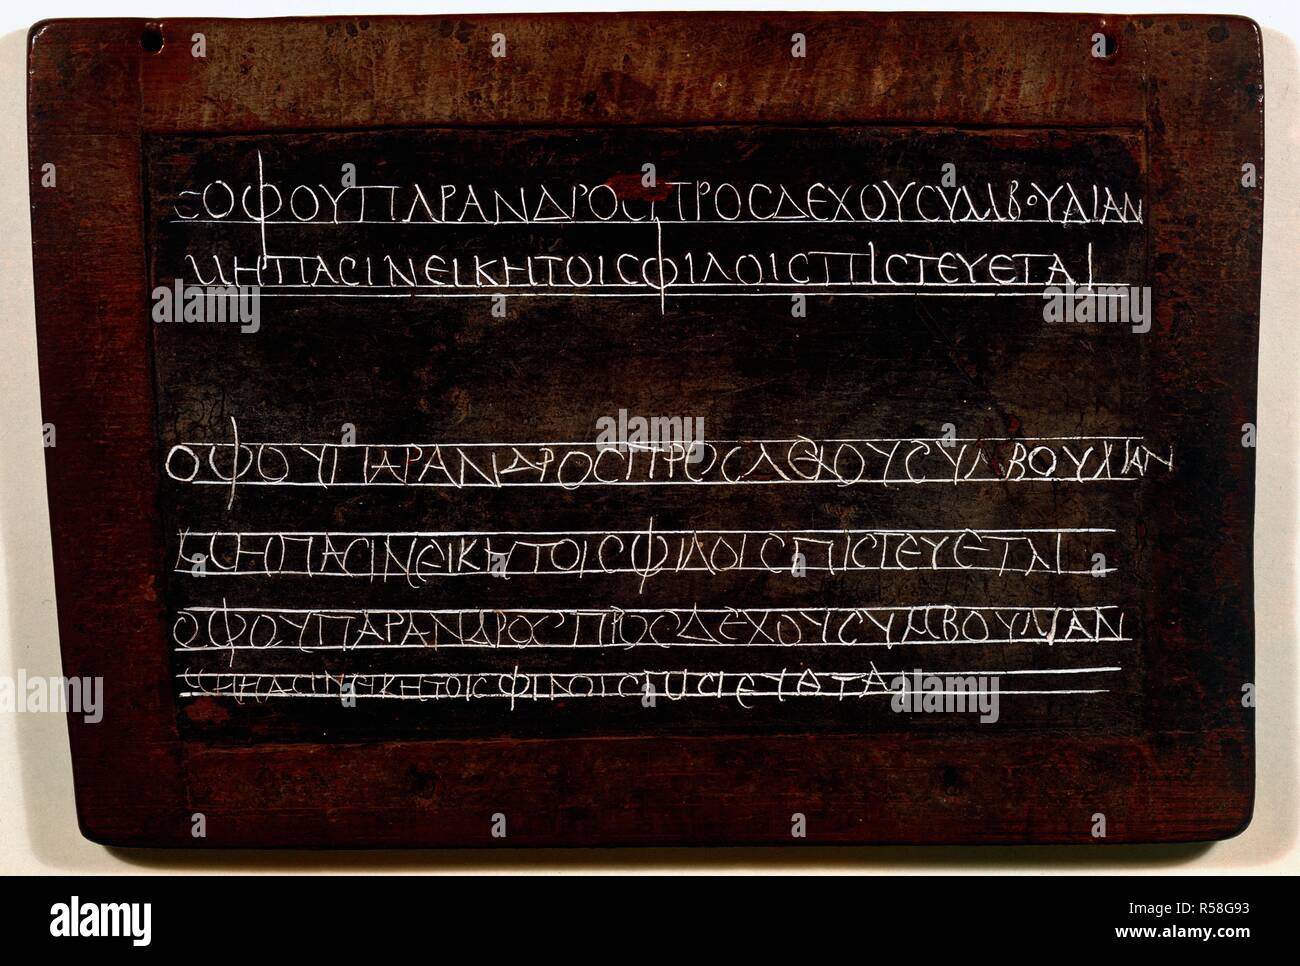 ΣΟΦΟΥΠΑΡΑΝΔΡΟΣΠΡΟΣΔΕΧΟΥΣΥΜΒΟΥΛΙΑΝ
ΜΗΠΑΣΙΝΕΙΚΗΤΟΙΣΦΙΛΟΙΣΠΙΣΤΕΥΕΤΑΙ
ΟΦΟΥΠΑΡΑΝΔΡΟΣΠΡΟΣΔΕΧΟΥΣΥΜΒΟΥΛΙΑΝ
ΜΗΠΑΣΙΝΕΙΚΗΤΟΙΣΦΙΛΟΙΣΠΙΣΤΕΥΕΤΑΙ
ΟΦΟΥΠΑΡΑΝΔΡΟΣΠΡΟΣΔΕΧΟΥΣΥΜΒΟΥΛΙΑΝ
ΜΗΠΑΣΙΝΕΙΚΗΤΟΙΣΦΙΛΟΙΣΠΙΣΤΕΥΕΤΑΙ
alamy
alamy
Image ID: R58G93
www.alamy.com